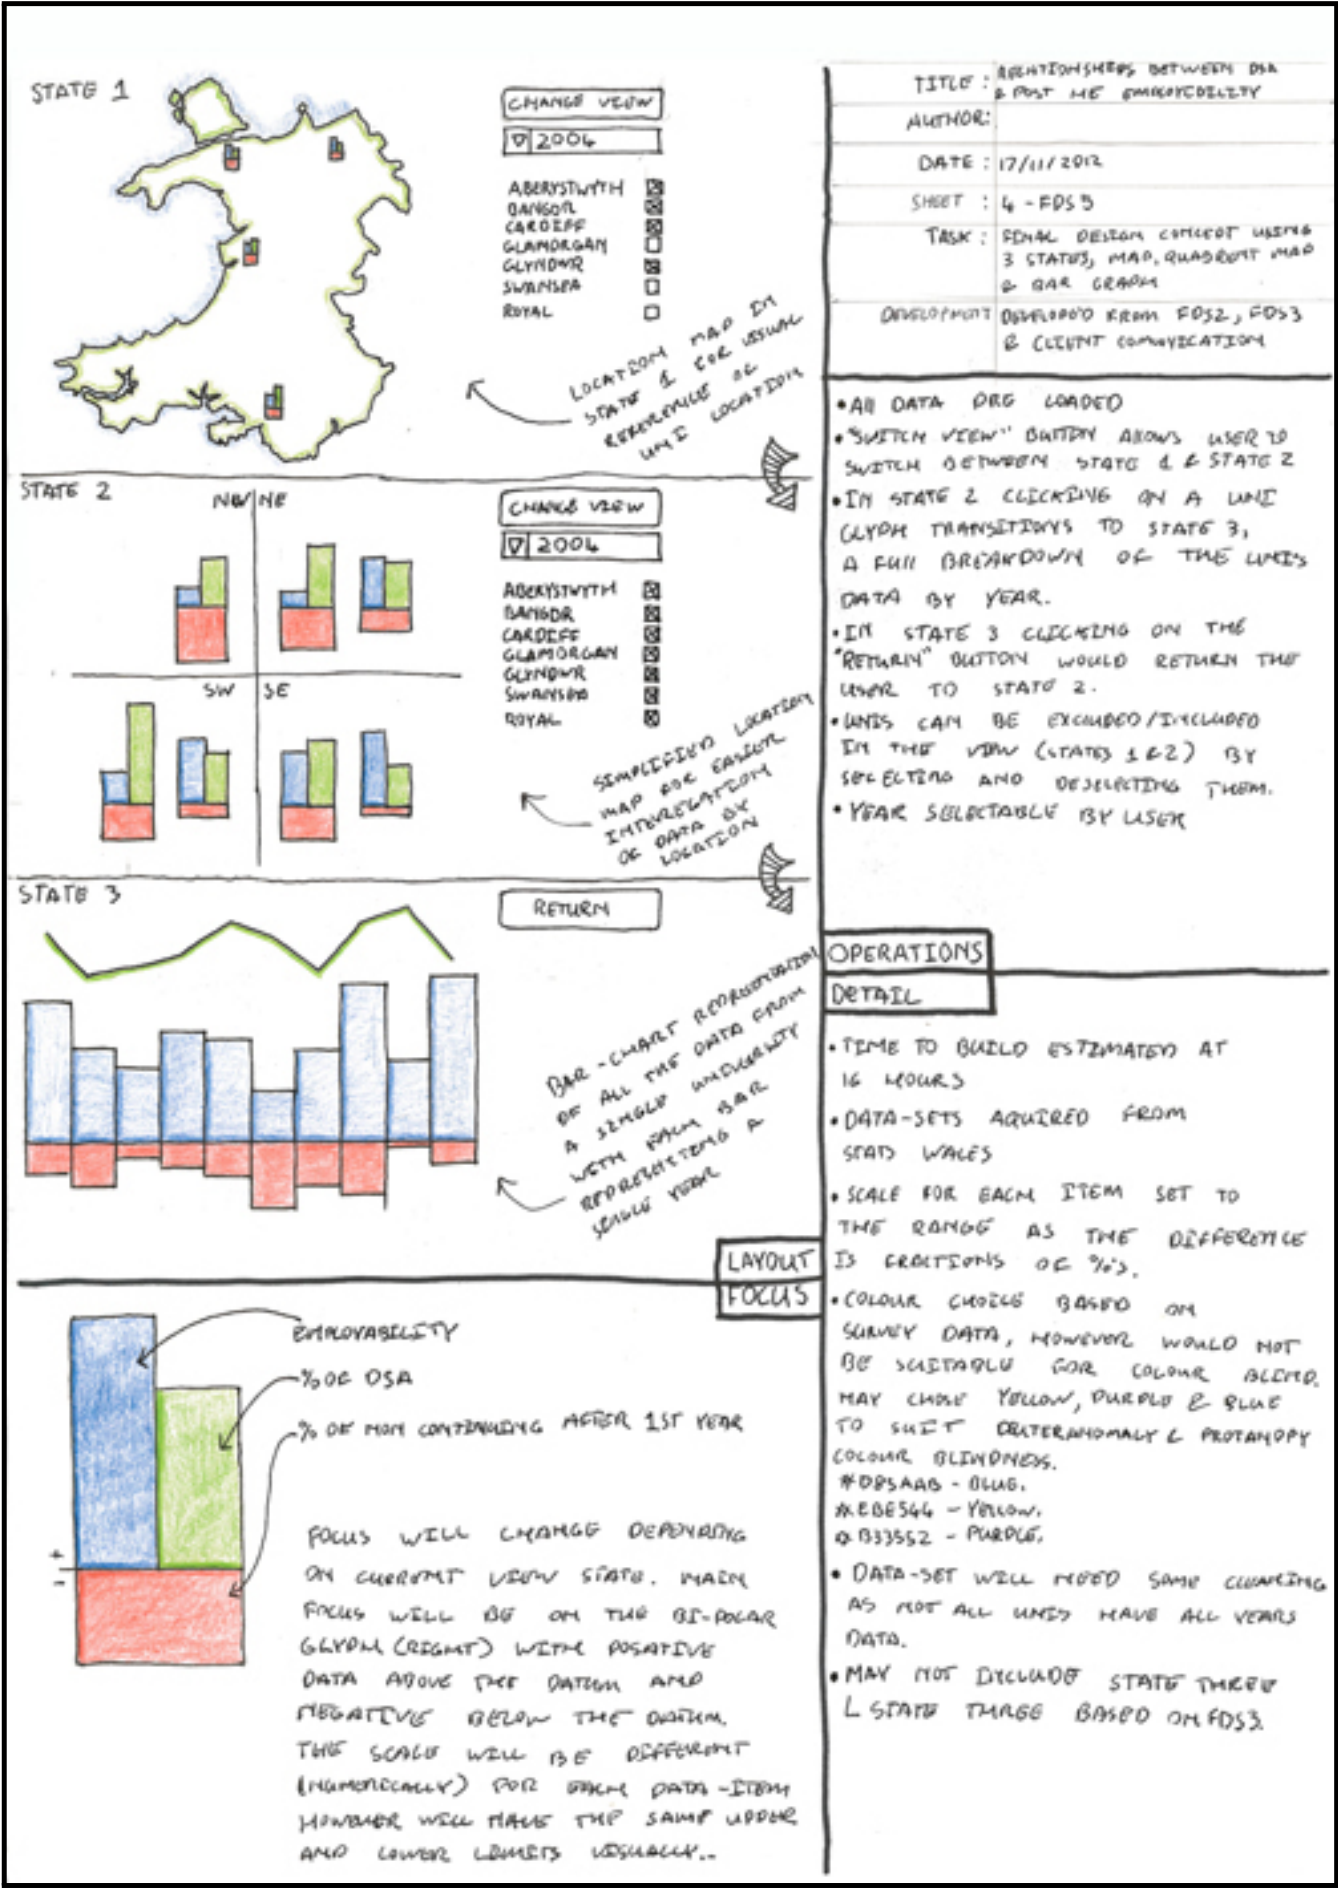 STATE 1
CHANGE VIEW
2004
ABERYSTWYTH
BANGOR
CARDIFF
GLAMORGAN
GLYNDWR
SWANSEA
ROYAL
LOCATION MAP IN
STATE 1 FOR VISUAL
REFERENCE OF
UNI LOCATION
STATE 2
NW NE
SW SE
CHANGE VIEW
2004
ABERYSTWYTH
BANGOR
CARDIFF
GLAMORGAN
GLYNDWR
SWANSEA
ROYAL
SIMPLIFIED LOCATION
MAP FOR EASIER
OF DATA BY
LOCATION
STATE 3
RETURN
BAR-CHART REPRESENTATION
OF ALL THE DATA FROM
A SINGLE UNIVERSITY
WITH EACH BAR
REPRESENTING A
SINGLE YEAR
LAYOUT
FOCUS
EMPLOYABILITY
% OF DSA
% OF NON CONTINUING AFTER 1ST YEAR
+
-
FOCUS WILL CHANGE DEPENDING
ON CURRENT VIEW STATE. MAIN
FOCUS WILL BE ON THE BI-POLAR
GLYPH (RIGHT) WITH POSATIVE
DATA ABOVE THE DATUM AND
NEGATIVE BELOW THE DATUM.
THE SCALE WILL BE DIFFERENT
(NUMERICALLY) FOR EACH DATA-ITEM
HOWEVER WILL HAVE THE SAME UPPER
AND LOWER LIMITS VISUALLY..
TITLE : RELATIONSHIPS BETWEEN DSA
& POST HE
AUTHOR:
DATE : 17/11/2012
SHEET : 4 - FDS 5
TASK : FINAL DESIGN CONCEPT USING
3 STATES, MAP, QUADRENT MAP
& BAR GRAPH
DEVELOPMENT FROM FDS2, FDS3
& CLIENT
• All DATA PRE LOADED
• "SWITCH VIEW" BUTTON ALLOWS USER TO
SWITCH BETWEEN STATE 1 & STATE 2
• IN STATE 2 CLICKING ON A UNI
GLYPH TRANSITIONS TO STATE 3,
A FULL BREAKDOWN OF THE UNI'S
DATA BY YEAR.
• IN STATE 3 CLICKING ON THE
"RETURN" BUTTON WOULD RETURN THE
USER TO STATE 2.
• UNIS CAN BE EXCLUDED/INCLUDED
IN THE VIEW (STATES 1 & 2) BY
SELECTING AND DESELECTING THEM.
• YEAR SELECTABLE BY USER
OPERATIONS
DETAIL
• TIME TO BUILD ESTIMATED AT
16 HOURS
• DATA-SETS AQUIRED FROM
STATS WALES
• SCALE FOR EACH ITEM SET TO
THE RANGE AS THE DIFFERENCE
IS FRACTIONS OF %'s.
• COLOUR CHOICE BASED ON
SURVEY DATA, HOWEVER WOULD NOT
BE SUITABLE FOR COLOUR BLIND.
MAY CHOSE YELLOW, PURPLE & BLUE
TO SUIT DEUTERANOMALY & PROTANOPY
COLOUR BLINDNESS.
#085AAB - BLUE.
#EBE544 - YELLOW.
# B33552 - PURPLE.
• DATA-SET WILL NEED SOME CLEANING
AS NOT ALL UNIS HAVE ALL YEARS
DATA.
• MAY NOT INCLUDE STATE THREE
L STATE THREE BASED ON FDS3.